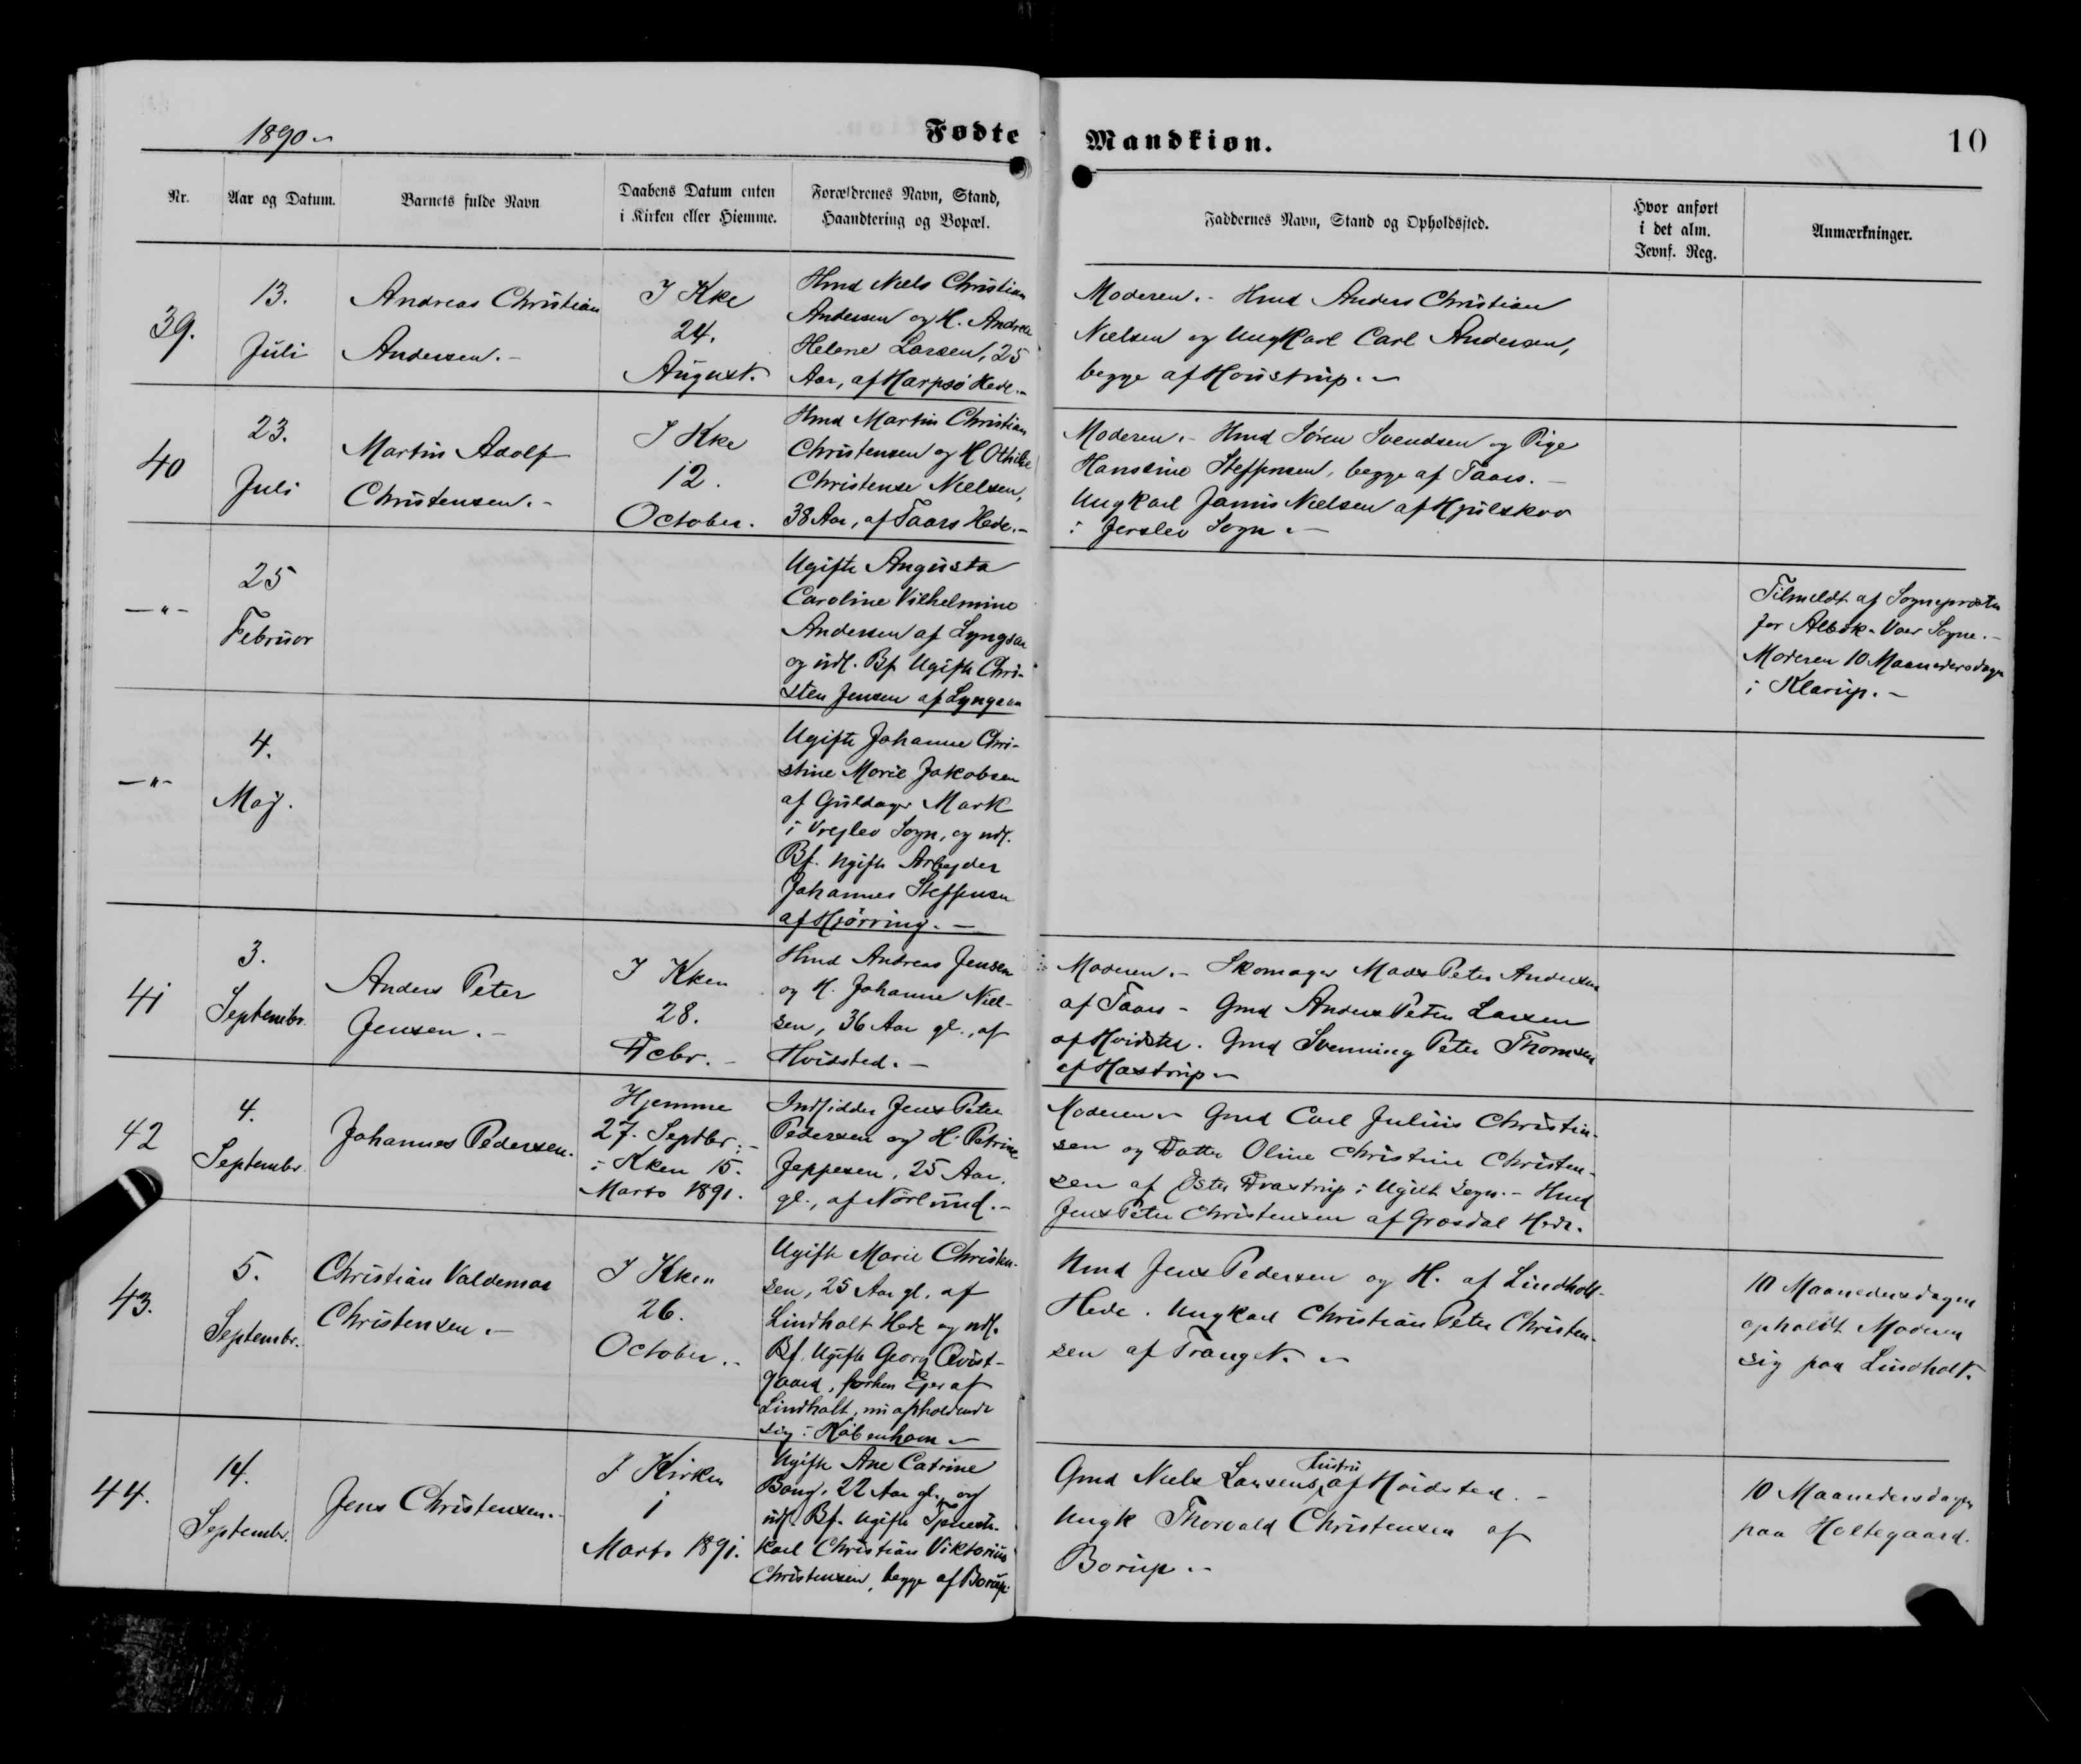 1890
Fødte Mandkiøn.
10
Nr.
Aar og Datum.
Barnets fulde Navn
Daabens Datum enten
i Kirken eller Hiemme.
Forældrenes Navn, Stand,
Haandtering og Bopæl.
Faddernes Navn, Stand og Opholdssted.
Hvor anført
i det alm.
Jevnf. Reg.
Anmærkninger.
39.
13.
Juli
Andreas Christian
Andersen.-
I Kke
24.
August.
Hmd Niels Christian
Andersen og H. Andrea
Helene Larsen, 25
Aar, af Harpsø Hede.-
Moderen.- Hmd Anders Christian
Nielsen og Ungkarl Carl Andersen,
begge af Houstrup.-
40
23.
Juli
Martin Adolf
Christensen.-
I Kke
12.
October.
Hmd Martin Christian
Christensen og H Othilie
Christense Nielsen,
38 Aar, af Taars Hede.-
Moderen.- Hmd Søren Svendsen og Pige
Hansine Steffensen, begge af Taars.-
Ungkarl Janus Nielsen af Hjulskov
i Jerslev Sogn.-
-"-
25
Februar
Ugifte Augusta
Caroline Vilhelmine
Andersen af Lyngsaa
og udl. Bf. Ugifte Chri-
sten Jensen af Lyngsaa
Tilmeldt af Sognepræsten
for Albæk-Voer Sogne.-
Moderen 10 Maanedersdagen
i Klarup.-
-"-
4.
Maj.
Ugifte Johanne Chri-
stine Marie Jakobsen
af Guldager Mark
i Vrejlev Sogn, og udl.
Bf. ugifte Arbejder
Johannes Steffensen
af Hjørring.-
41
3.
Septembr.
Anders Peter
Jensen.-
I Kken
28.
Decbr.-
Hmd Andreas Jensen
og H. Johanne Niel-
sen, 36 Aar gl., af
Hvidsted.-
Moderen.- Skomager Mads Peter Andersen
af Taars - Gmd Anders Peter Larsen
af Hvidsted. Gmd Svenning Peter Thomsen
af Haxtrup-
42
4.
Septembr.
Johannes Pedersen.
Hjemme
27. Septbr.;-
i Kken 15.
Marts 1891.
Indsidder Jens Peter
Pedersen og H. Petrine
Jeppesen, 25 Aar
gl., af Nørlund.-
Moderen.- Gmd Carl Julius Christen-
sen og Datter Oline Christine Christen-
sen af Øster Draxtrup i Ugilt Sogn.- Hmd
Jens Peter Christensen af Grøsdal Hede.
43.
5.
Septembr.
Christian Valdemar
Christensen.-
I Kken
26.
October.-
Ugifte Marie Christen-
sen, 25 Aar gl. af
Lindholt Hede og udl.
Bf. Ugifte Georg Qvist-
gaard, forhen Ejer af
Lindholt, nu opholdende
sig i København-
Hmd Jens Pedersen og H. af Lindholt-
Hede. Ungkarl Christian Peter Christen-
sen af Tranget.-
10 Maanedersdagen
opholdt Moderen
sig paa Lindholt.
44.
14.
Septembr.
Jens Christensen.-
I Kirken
1
Marts 1891.
Ugifte Ane Catrine
Bang, 22 Aar gl., og
udl. Bf. ugifte Tjeneste-
karl Christian Viktorius
Christensen, begge af Borup.
Gmd Niels Larsens Hustru af Hvidsted.-
Ungk Thorvald Christensen af
Borup.-
10 Maanedersdagen
paa Holtegaard.